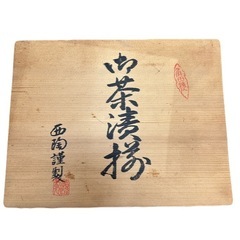 御茶漬揃
西陶謹製